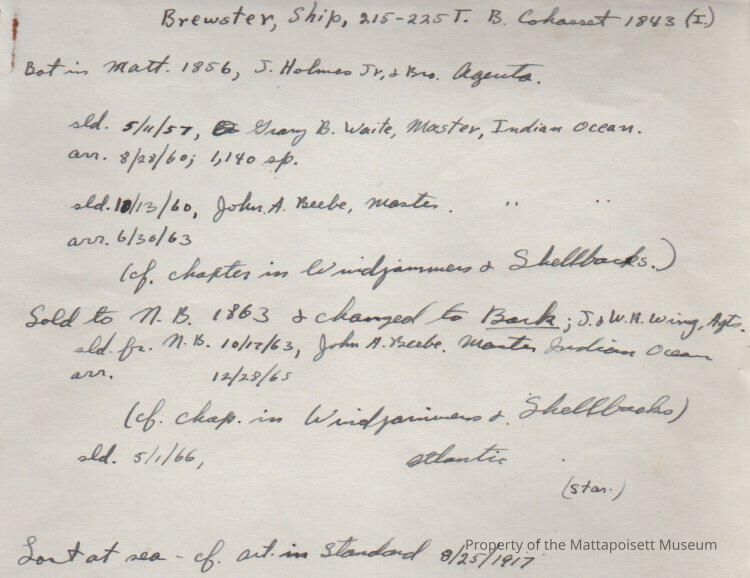 Brewster, Ship, 215-225 T. B. Cohasset 1843 (I.)
Bot in Matt. 1856, J. Holmes Jr. & Bro. Agents.
sld. 5/11/57, Geary B. Waite, Master, Indian Ocean.
arr. 8/28/60; 1,140 sp.
sld. 10/13/60, John A. Beebe, Master. " "
arr. 6/30/63
(cf. chapter in Windjammers & Shellbacks.)
Sold to N.B. 1863 & changed to Bark; J. & W.R. Wing, Agts.
sld. fr. N.B. 10/17/63, John A. Beebe, Master Indian Ocean
arr. 12/28/65
(cf. chap. in Windjammers & Shellbacks)
sld. 5/1/66, Atlantic .
(Star.)
Lost at sea - cf. art. in Standard 8/25/1917
Property of the Mattapoisett Museum